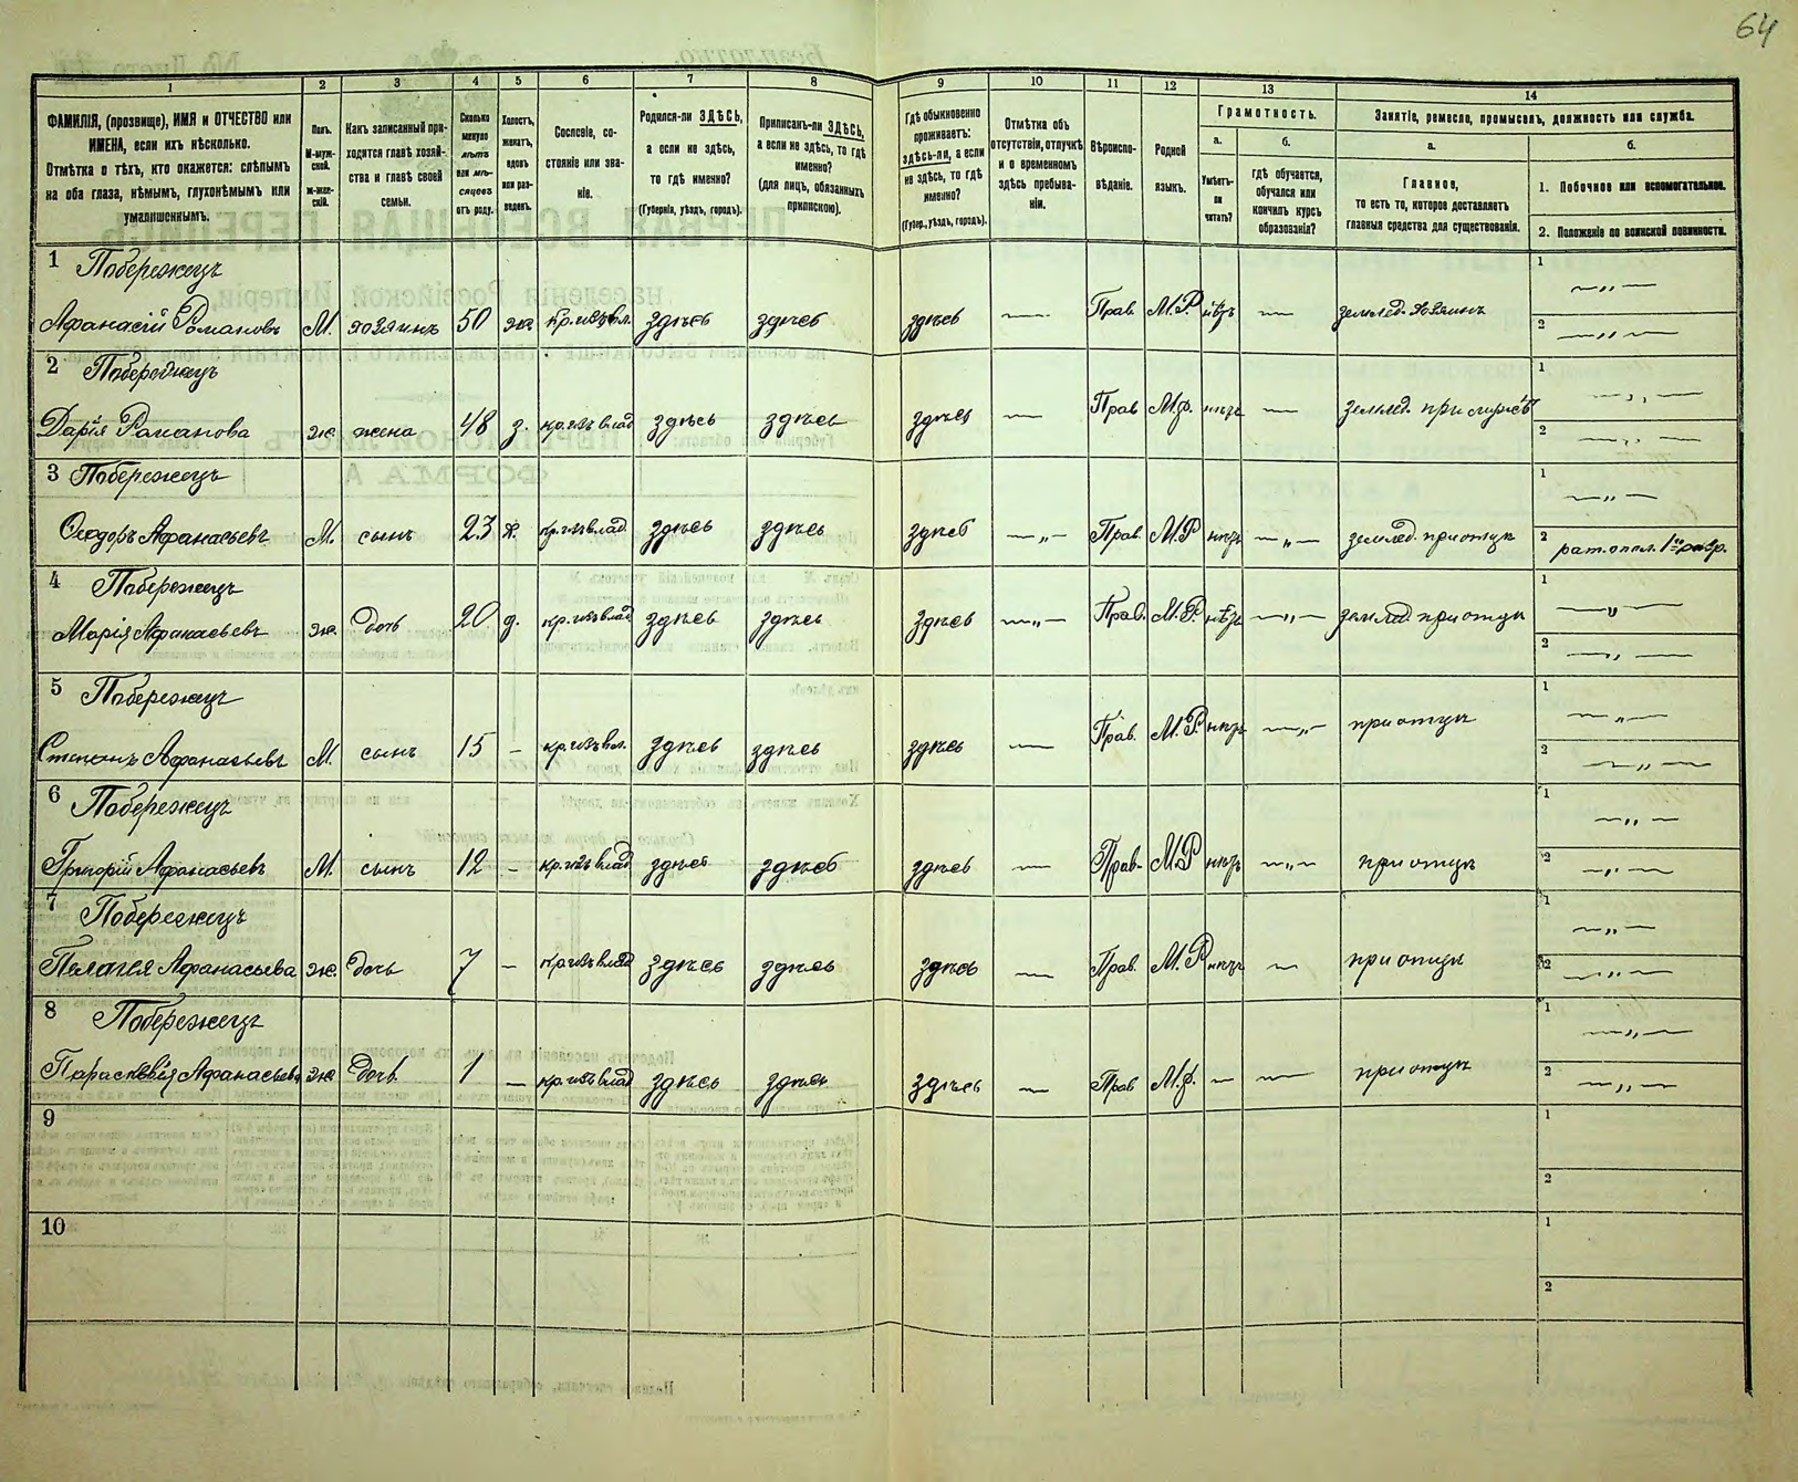 64
1 2 3 4 5 6 7 8 9 10 11 12 13 14
ФАМИЛІЯ, (прозвище), ИМЯ и ОТЧЕСТВО или ИМЕНА, если ихъ нѣсколько.
Отмѣтка о тѣхъ, кто окажется: слѣпымъ на оба глаза, нѣмымъ, глухонѣмымъ или умалишеннымъ.
Полъ. М-мужской. Ж-женскій.
Какъ записанный приходится главѣ хозяйства и главѣ своей семьи.
Сколько минуло лѣтъ или мѣсяцевъ отъ роду.
Холостъ, женатъ, вдовъ или разведенъ.
Сословіе, состояніе или званіе.
Родился-ли ЗДѢСЬ, а если не здѣсь, то гдѣ именно?
(Губернія, уѣздъ, городъ).
Приписанъ-ли ЗДѢСЬ, а если не здѣсь, то гдѣ именно?
(для лицъ, обязанныхъ припискою).
Гдѣ обыкновенно проживаетъ: здѣсь-ли, а если не здѣсь, то гдѣ именно?
(Губер., уѣздъ, городъ).
Отмѣтка объ отсутствіи, отлучкѣ и о временномъ здѣсь пребываніи.
Вѣроисповѣданіе.
Родной языкъ.
Грамотность.
а. Умѣетъ-ли читать?
б. Гдѣ обучается, обучался или кончилъ курсъ образованія?
Занятіе, ремесло, промыселъ, должность или служба.
а. Главное,
то есть то, которое доставляетъ главныя средства для существованія.
б.
1. Побочное или вспомогательное.
2. Положеніе по воинской повинности.
1 Побережецъ
Афанасій Романовъ М. хозяинъ 50 же кр. изъ вл. здѣсь здѣсь здѣсь — Прав. М.Р. нѣтъ — землед. хозяинъ
1 — „ —
2 — „ —
2 Побережецъ
Дарія Романова ж. жена 48 з. кр. изъ влад здѣсь здѣсь здѣсь — Прав М.р. нѣтъ — землед. при мужѣ
1 — „ —
2 — „ —
3 Побережецъ
Ѳеодоръ Афанасьевъ М. сынъ 23 х. кр. изъ влад. здѣсь здѣсь здѣсь — „ — Прав. М.Р нѣтъ — „ — землед. при отцѣ
1 — „ —
2 рат. опол. 1го разр.
4 Побережецъ
Марія Афанасьевъ ж. дочь 20 д. кр. изъ влад здѣсь здѣсь здѣсь — „ — Прав. М.Р. нѣтъ — „ — землед при отцѣ
1 — „ —
2 — „ —
5 Побережецъ
Степанъ Афанасьевъ М. сынъ 15 — кр. изъ вл. здѣсь здѣсь здѣсь — Прав. М.Р. нѣтъ — „ — при отцѣ
1 — „ —
2 — „ —
6 Побережецъ
Григорій Афанасьевъ М. сынъ 12 — кр. изъ влад здѣсь здѣсь здѣсь — Прав. М.Р нѣтъ — „ — при отцѣ
1 — „ —
2 — „ —
7 Побережецъ
Пелагея Афанасьева ж. дочь 7 — кр изъ влад здѣсь здѣсь здѣсь — Прав. М.Р нѣтъ — при отцѣ
1 — „ —
2 — „ —
8 Побережецъ
Параскевія Афанасьева ж дочь 1 — кр. изъ влад здѣсь здѣсь здѣсь — Прав М.р. — — при отцѣ
1 — „ —
2 — „ —
9
1
2
10
1
2